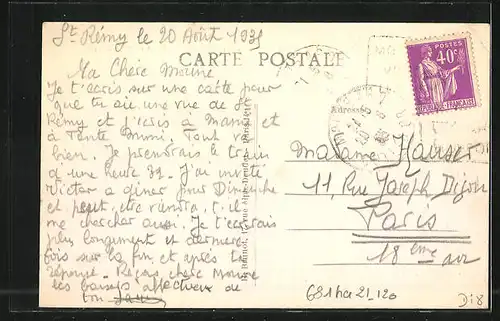 St Rémy le 20 Août 1935
CARTE POSTALE
Ma Chère Moune
Je t'écris sur une carte pour
que tu aies une vue de St
Rémy et j'écris à Maman et
à Tante Mimi. Tout va
bien. Je prendrai le train
d'une heure 32. J'ai invité
Victor à diner pour Dimanche
et peut être viendra t-il
me chercher aussi. Je t'écrirais
plus longuement et dernière
fois sur la fin et après ta
réponse. Reçois chère Moune
les baisers affectueux de
ton
Adresse
Madame Hauser
11, Rue Joseph Dijon
Paris
18ème arr
POSTES
40c
REPUBLIQUE FRANÇAISE
681ha 21_120
Di8